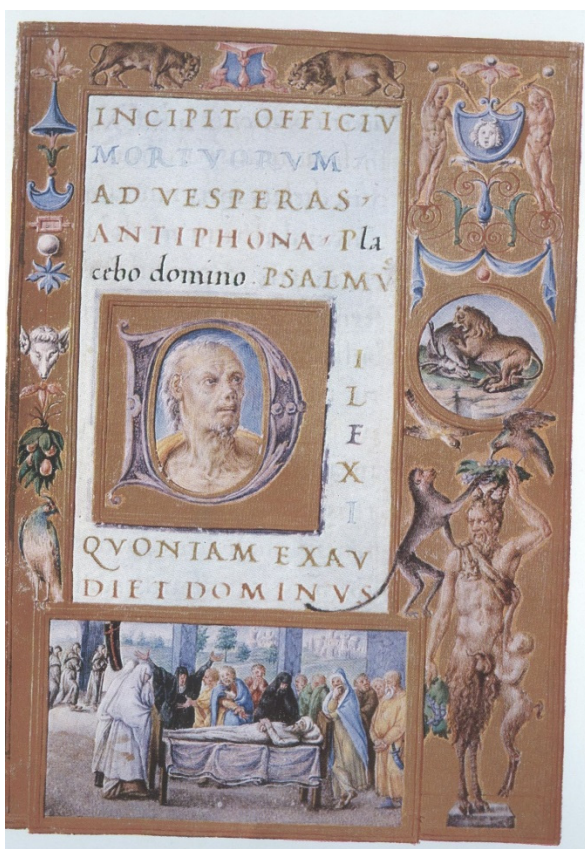 INCIPIT OFFICIV
MORTVORVM
AD VESPERAS,
ANTIPHONA, Pla
cebo domino. PSALMVS
D
I
L
E
X
I
QVONIAM EXAV
DIET DOMINVS